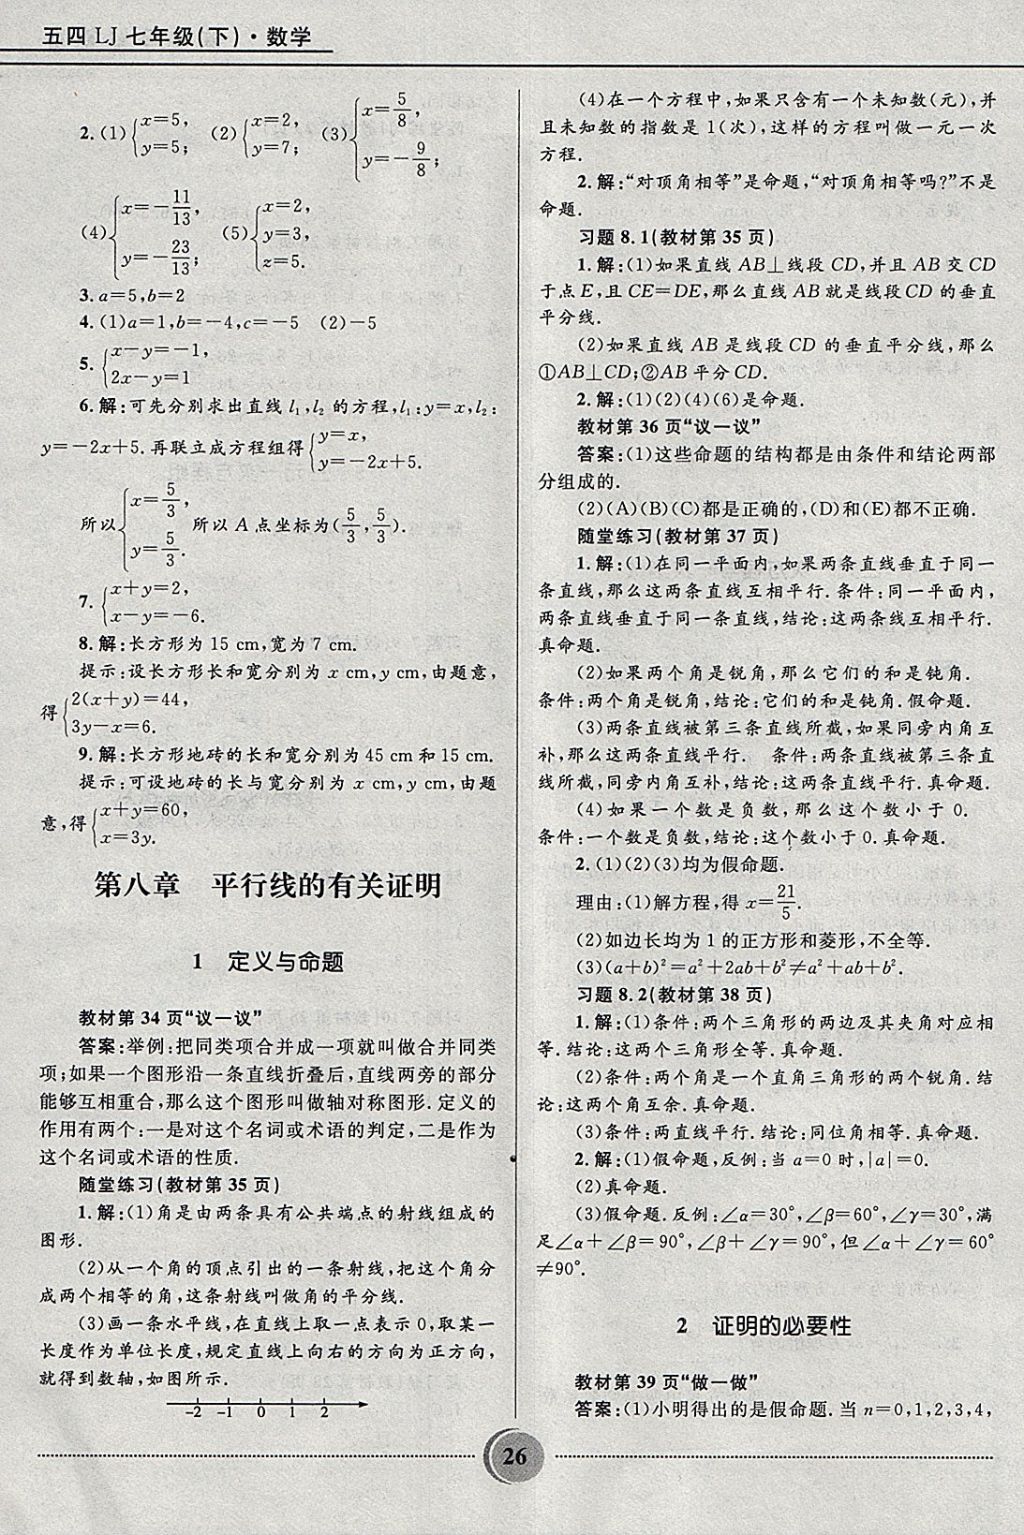 五四 LJ 七年级(下)·数学
2.(1){x=5, y=5; (2){x=2, y=7; (3){x=5/8, y=-9/8;
(4){x=-11/13, y=-23/13; (5){x=2, y=3, z=5.
3.a=5,b=2
4.(1)a=1,b=-4,c=-5 (2)-5
5.{x-y=-1, 2x-y=1
6.解:可先分别求出直线 l₁,l₂ 的方程,l₁:y=x,l₂:
y=-2x+5.再联立成方程组得{y=x, y=-2x+5.
所以{x=5/3, y=5/3. 所以 A 点坐标为(5/3,5/3).
7.{x+y=2, x-y=-6.
8.解:长方形为 15 cm,宽为 7 cm.
提示:设长方形长和宽分别为 x cm,y cm,由题意,
得{2(x+y)=44, 3y-x=6.
9.解:长方形地砖的长和宽分别为 45 cm 和 15 cm.
提示:可设地砖的长与宽分别为 x cm,y cm,由题
意,得{x+y=60, x=3y.
第八章 平行线的有关证明
1 定义与命题
教材第 34 页“议一议”
答案:举例:把同类项合并成一项就叫做合并同类
项;如果一个图形沿一条直线折叠后,直线两旁的部分
能够互相重合,那么这个图形叫做轴对称图形.定义的
作用有两个:一是对这个名词或术语的判定,二是作为
这个名词或术语的性质.
随堂练习(教材第 35 页)
1.解:(1)角是由两条具有公共端点的射线组成的
图形.
(2)从一个角的顶点引出的一条射线,把这个角分
成两个相等的角,这条射线叫做角的平分线.
(3)画一条水平线,在直线上取一点表示 0,取某一
长度作为单位长度,规定直线上向右的方向为正方向,
就得到数轴,如图所示.
-2 -1 0 1 2
(4)在一个方程中,如果只含有一个未知数(元),并
且未知数的指数是 1(次),这样的方程叫做一元一次
方程.
2.解:“对顶角相等”是命题,“对顶角相等吗?”不是
命题.
习题 8.1(教材第 35 页)
1.解:(1)如果直线 AB⊥线段 CD,并且 AB 交 CD
于点 E,且 CE=DE,那么直线 AB 就是线段 CD 的垂直
平分线.
(2)如果直线 AB 是线段 CD 的垂直平分线,那么
①AB⊥CD;②AB 平分 CD.
2.解:(1)(2)(4)(6)是命题.
教材第 36 页“议一议”
答案:(1)这些命题的结构都是由条件和结论两部
分组成的.
(2)(A)(B)(C)都是正确的,(D)和(E)都不正确.
随堂练习(教材第 37 页)
1.解:(1)在同一平面内,如果两条直线垂直于同一
条直线,那么这两条直线互相平行.条件:同一平面内,
两条直线垂直于同一条直线,结论:这两条线互相平行.
真命题.
(2)如果两个角是锐角,那么它们的和是钝角.
条件:两个角是锐角,结论:它们的和是钝角.假命题.
(3)两条直线被第三条直线所截,如果同旁内角互
补,那么这两条直线平行. 条件:两条直线被第三条直
线所截,同旁内角互补,结论:这两条直线平行.真命题.
(4)如果一个数是负数,那么这个数小于 0.
条件:一个数是负数,结论:这个数小于 0.真命题.
2.(1)(2)(3)均为假命题.
理由:(1)解方程,得 x=21/5.
(2)如边长均为 1 的正方形和菱形,不全等.
(3)(a+b)²=a²+2ab+b²≠a²+ab+b².
习题 8.2(教材第 38 页)
1.解:(1)条件:两个三角形的两边及其夹角对应相
等.结论:这两个三角形全等.真命题.
(2)条件:两个角是一个直角三角形的两个锐角.结
论:这两个角互余.真命题.
(3)条件:两直线平行.结论:同位角相等.真命题.
2.解:(1)假命题,反例:当 a=0 时,|a|=0.
(2)真命题.
(3)假命题.反例:∠α=30°,∠β=60°,∠γ=30°,满
足∠α+∠β=90°,∠β+∠γ=90°,但∠α+∠γ=60°
≠90°.
2 证明的必要性
教材第 39 页“做一做”
答案:(1)小明得出的是假命题.当 n=0,1,2,3,4,
26